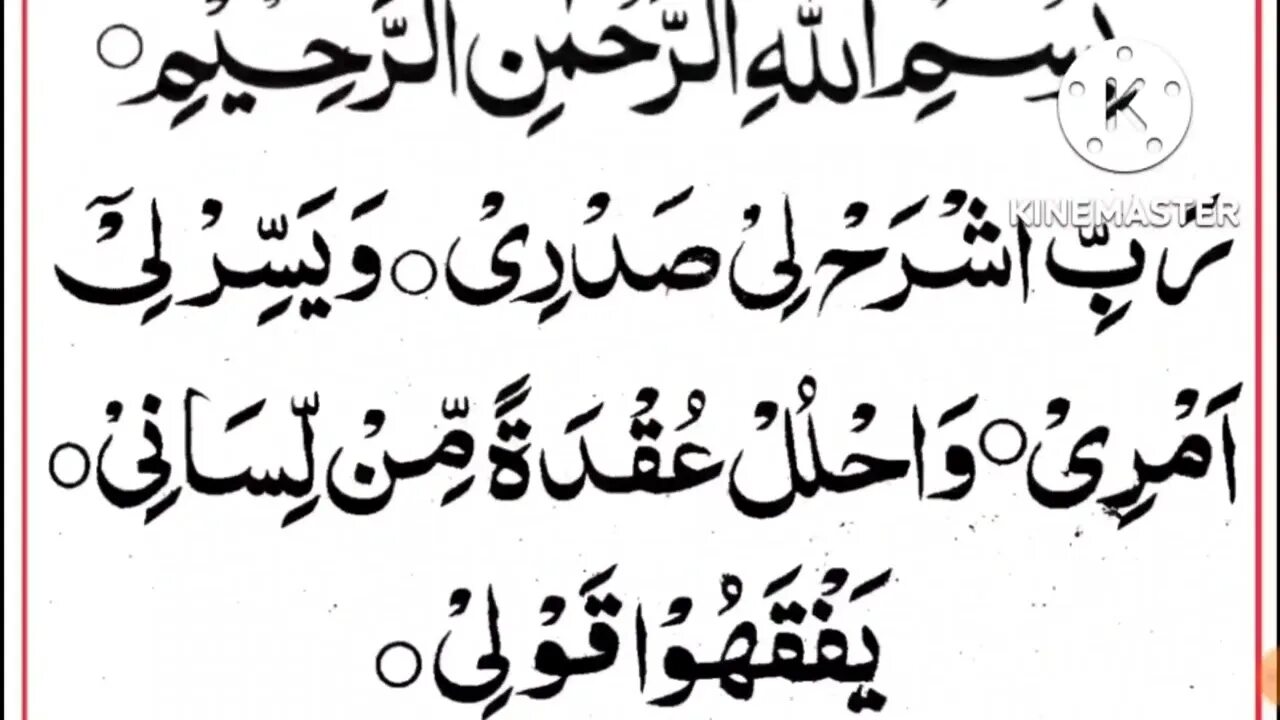 بِسْمِ اللّٰهِ الرَّحْمٰنِ الرَّحِيْمِ ○
K
KINEMASTER
رَبِّ اشْرَحْ لِیْ صَدْرِیْ ○ وَیَسِّرْ لِیْۤ
اَمْرِیْ ○ وَاحْلُلْ عُقْدَةً مِّنْ لِّسَانِیْ ○
یَفْقَهُوْا قَوْلِیْ ○